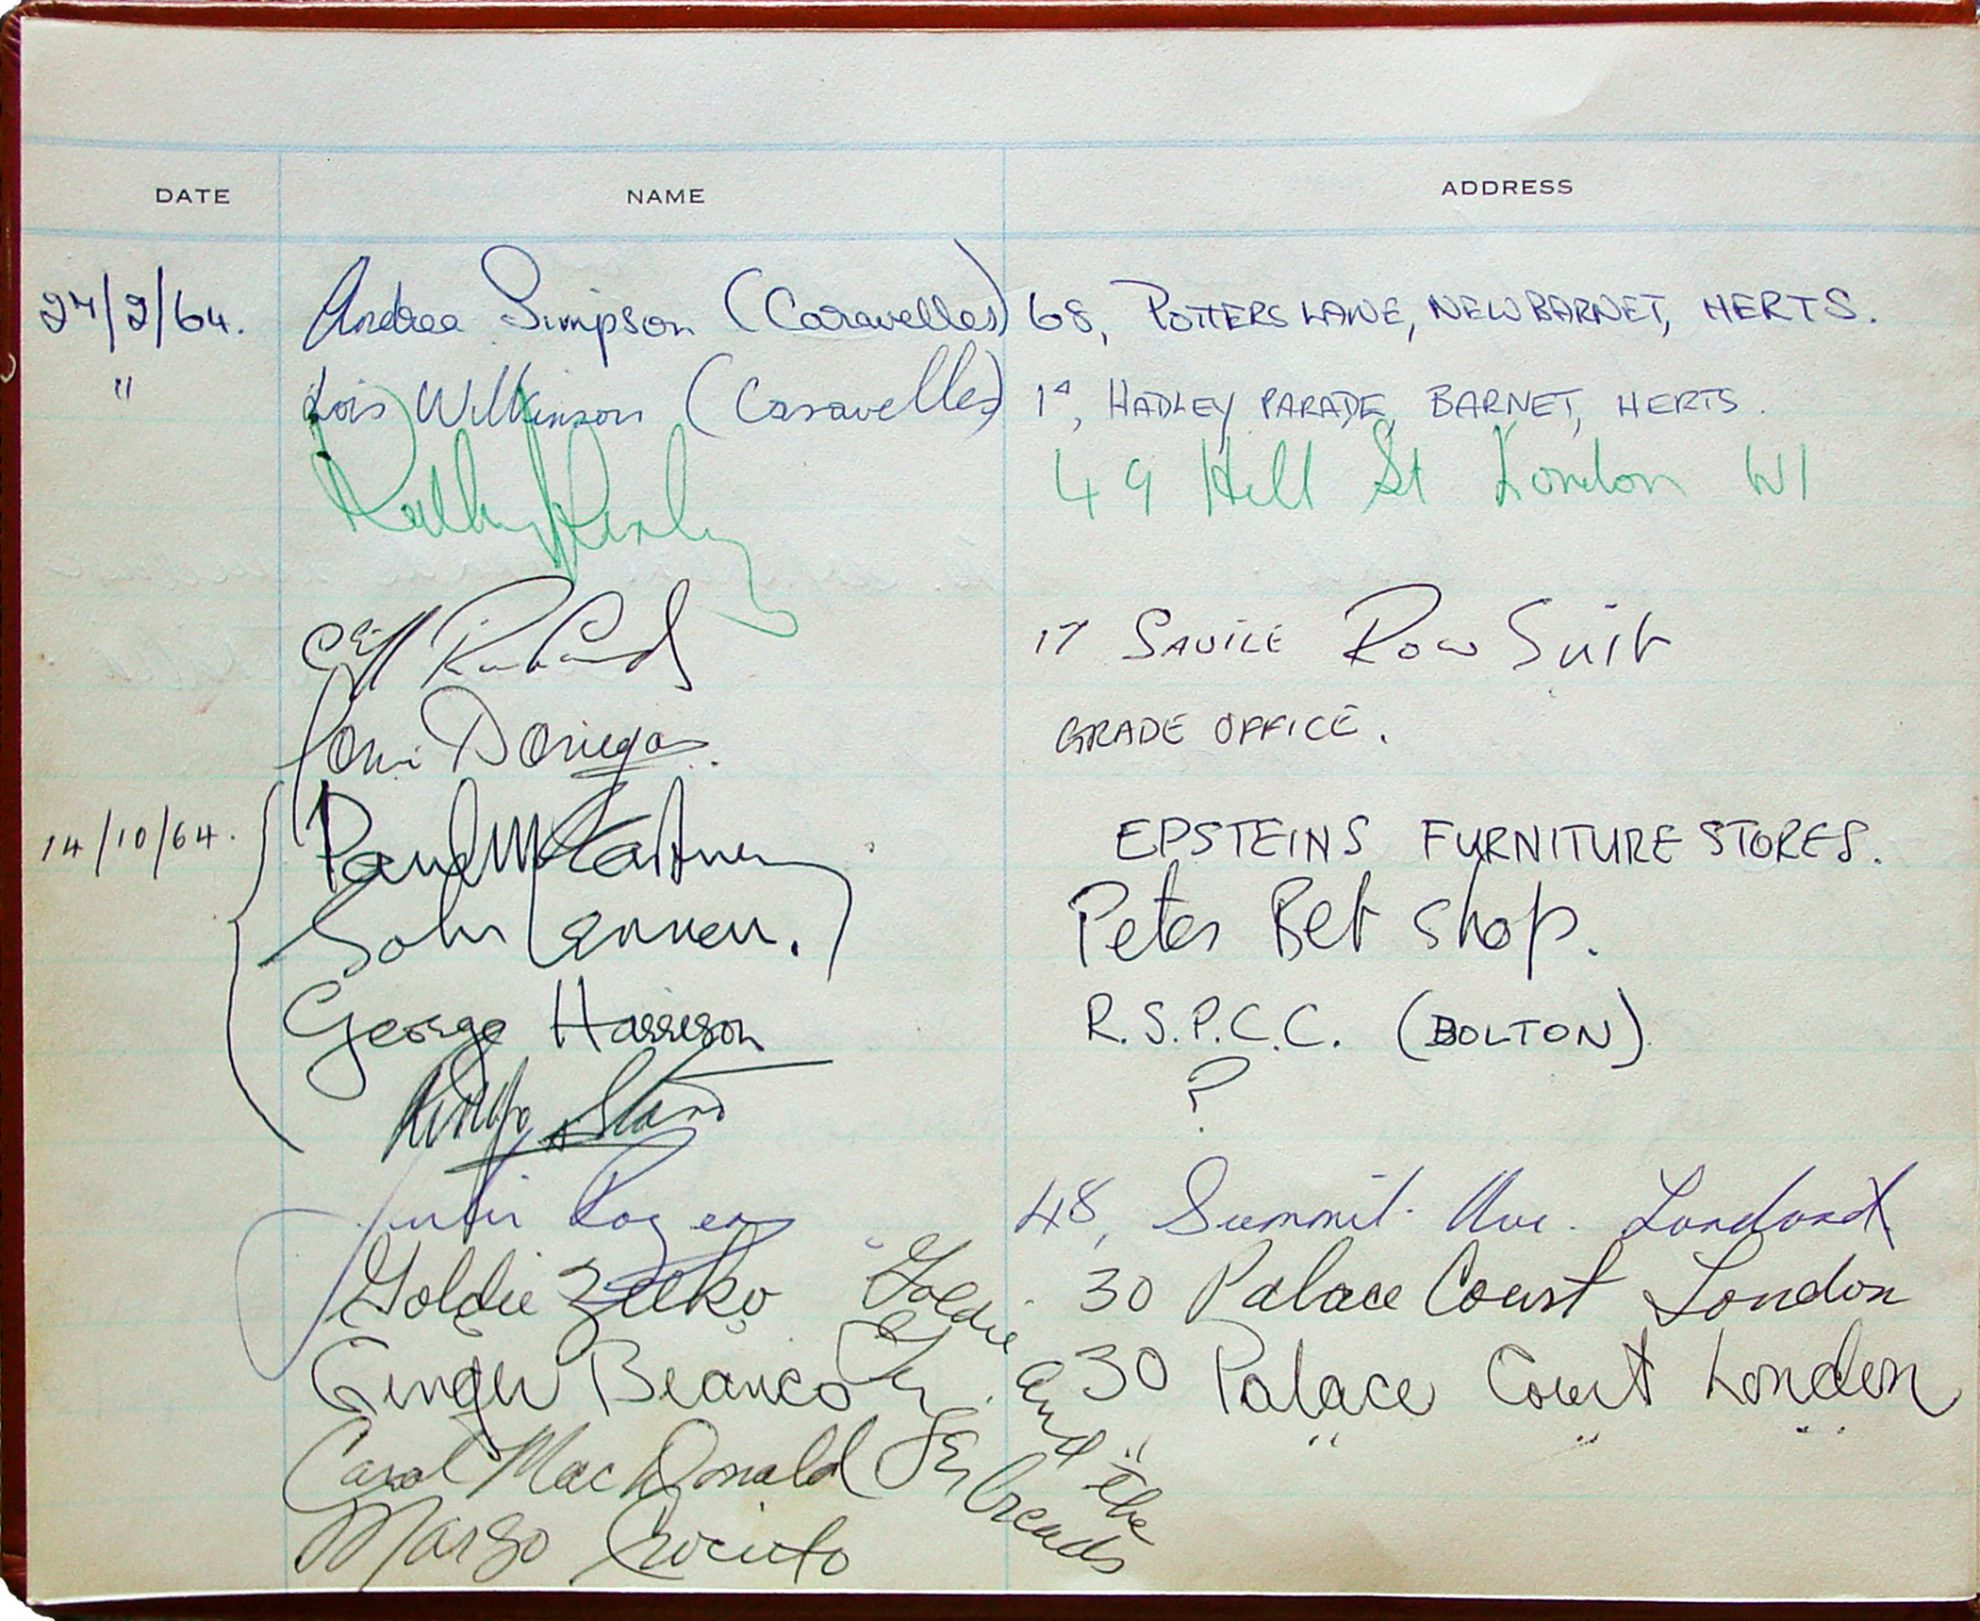 DATE NAME ADDRESS
27/2/64. Andrea Simpson (Caravelles) 68, POTTERS LANE, NEW BARNET, HERTS.
" Lois Wilkinson (Caravelles) 1A, HADLEY PARADE, BARNET, HERTS.
Kathy Kirby 49 Hill St London W1
Cliff Richard 17 SAVILE Row Suit
Donegan. GRADE OFFICE.
14/10/64. Paul McCartney EPSTEINS FURNITURE STORES.
John Lennon. Peter Bet Shop.
George Harrison R.S.P.C.C. (BOLTON)
Ringo Starr ?
Julie Rogers 48, Summit Ave. London
Goldie Zelko 30 Palace Court London
Ginger Bianco 30 Palace Court London
Carol MacDonald " " " "
Margo Crocitto
Goldie and the Gingerbreads